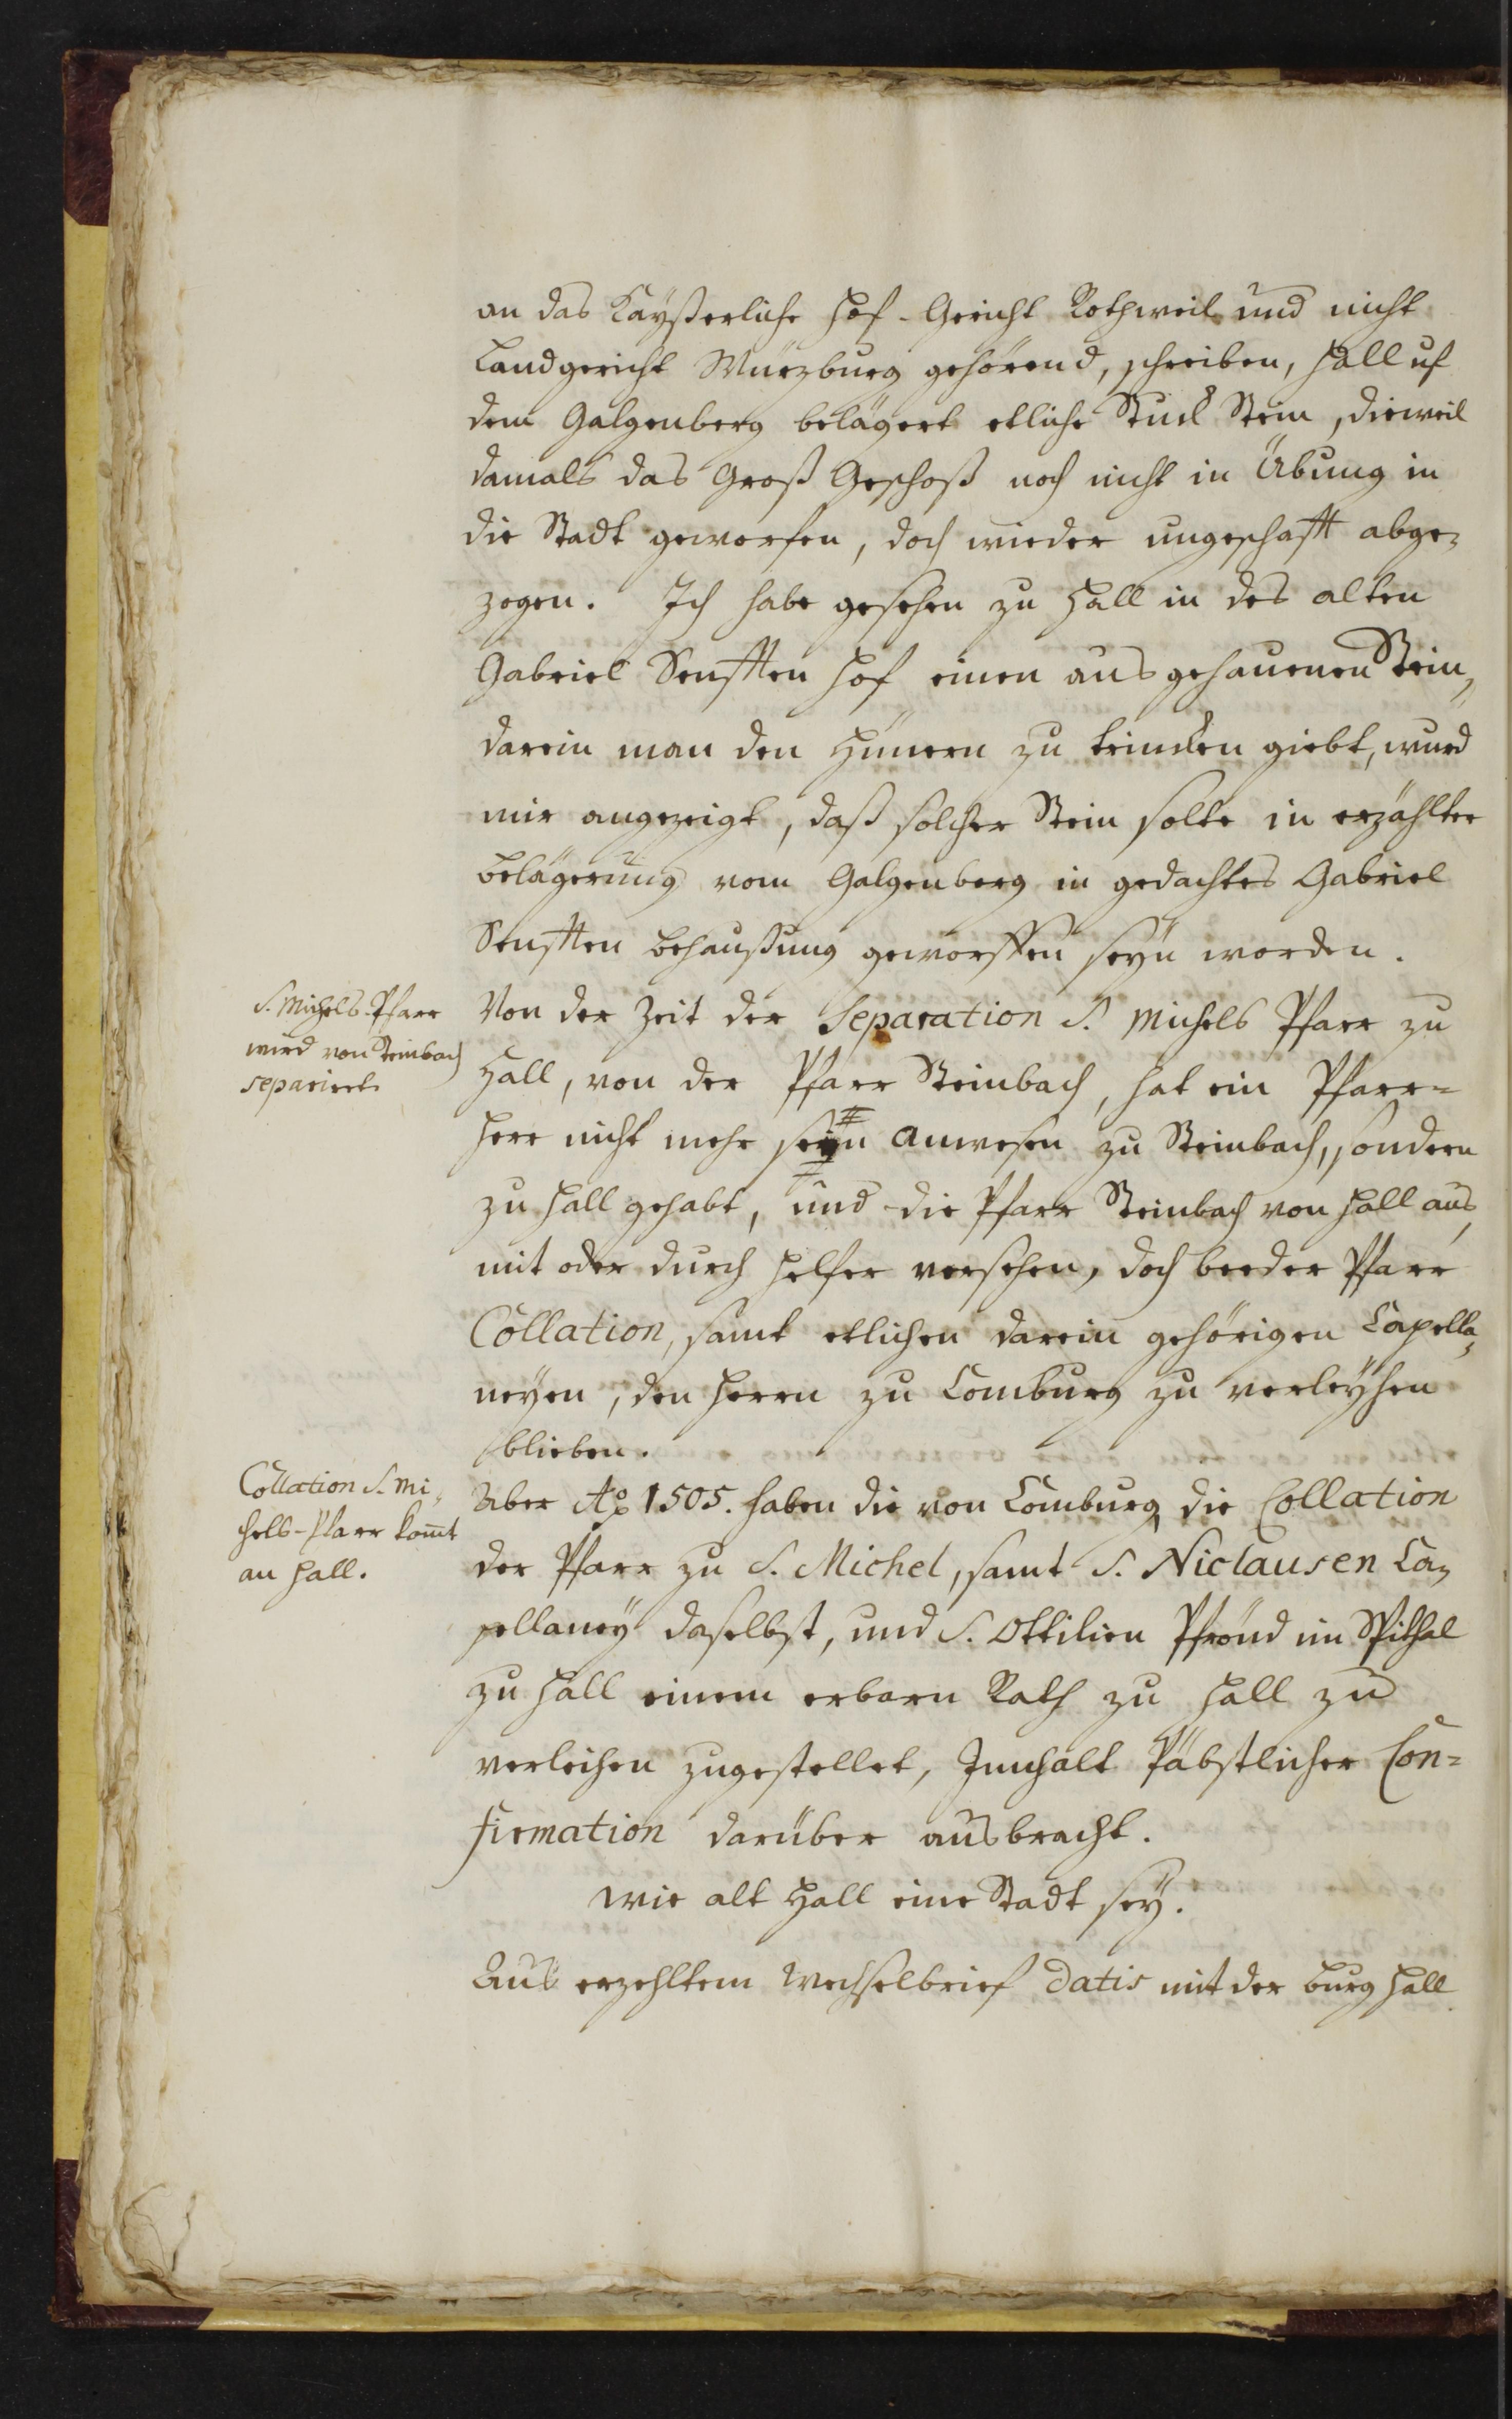 an das Kaÿßerliche Hof-Gericht Rothweil und nicht
Landgericht Würzburg gehörend, schreiben, Hall uf
dem Galgenberg belägert etliche Stuck Stein, dieweil
damals das Groß Geschoß noch nicht in Übung in
die Stadt geworfen, doch wieder ungeschafft abge-
zogen. Ich habe gesehen zu Hall in des alten
Gabriel Senfften Hof einen ausgehauenen Stein,
darein man den Hünern zu trincken giebt, wurd
mir angezeigt, daß solcher Stein solte in erzählter
Belägerung vom Galgenberg in gedachtes Gabriel
Senfften Behaußung geworffen seyn worden.
S. Michels-Pfarr
wird von Steinbach
separiert
Von der Zeit der Separation S. Michels Pfarr zu
Hall, von der Pfarr Steinbach, hat ein Pfarr-
herr nicht mehr sein Anwesen zu Steinbach, sondern
zu Hall gehabt, und die Pfarr Steinbach von Hall aus,
mit oder durch Helfer versehen, doch beeder Pfarr
Collation, samt etlichen darein gehörigen Capella-
neÿen, den Herrn zu Comburg zu verleÿhen
blieben.
Collation S. Mi-
chels-Pfarr komt
an Hall.
Aber Ao 1505. haben die von Comburg die Collation
der Pfarr zu S. Michel, samt S. Niclausen Ca-
pellaneÿ daselbst, und S. Ottilien Pfrönd im Spithal
zu Hall einem erbarn Rath zu Hall zu
verleihen zugestellet, Innhalt Päbstlicher Con-
firmation darüber ausbracht.
Wie alt Hall eine Stadt seÿ.
Aus erzehltem Wechselbrief datis mit der Burg Hall